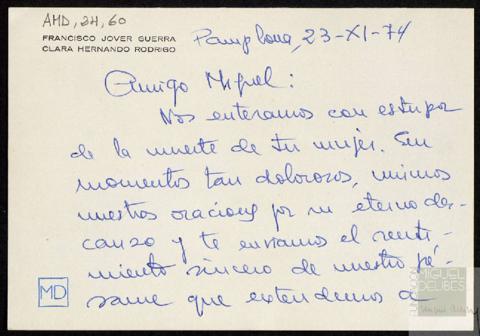 AMD, 34, 60
FRANCISCO JOVER GUERRA
CLARA HERNANDO RODRIGO
Pamplona, 23-XI-74
Amigo Miguel:
Nos enteramos con estupor
de la muerte de tu mujer. En
momentos tan dolorosos, unimos
nuestras oraciones por su eterno des-
canso y te enviamos el senti-
miento sincero de nuestro pé-
same que extendemos a
MD
FUNDACIÓN
MIGUEL
DELIBES